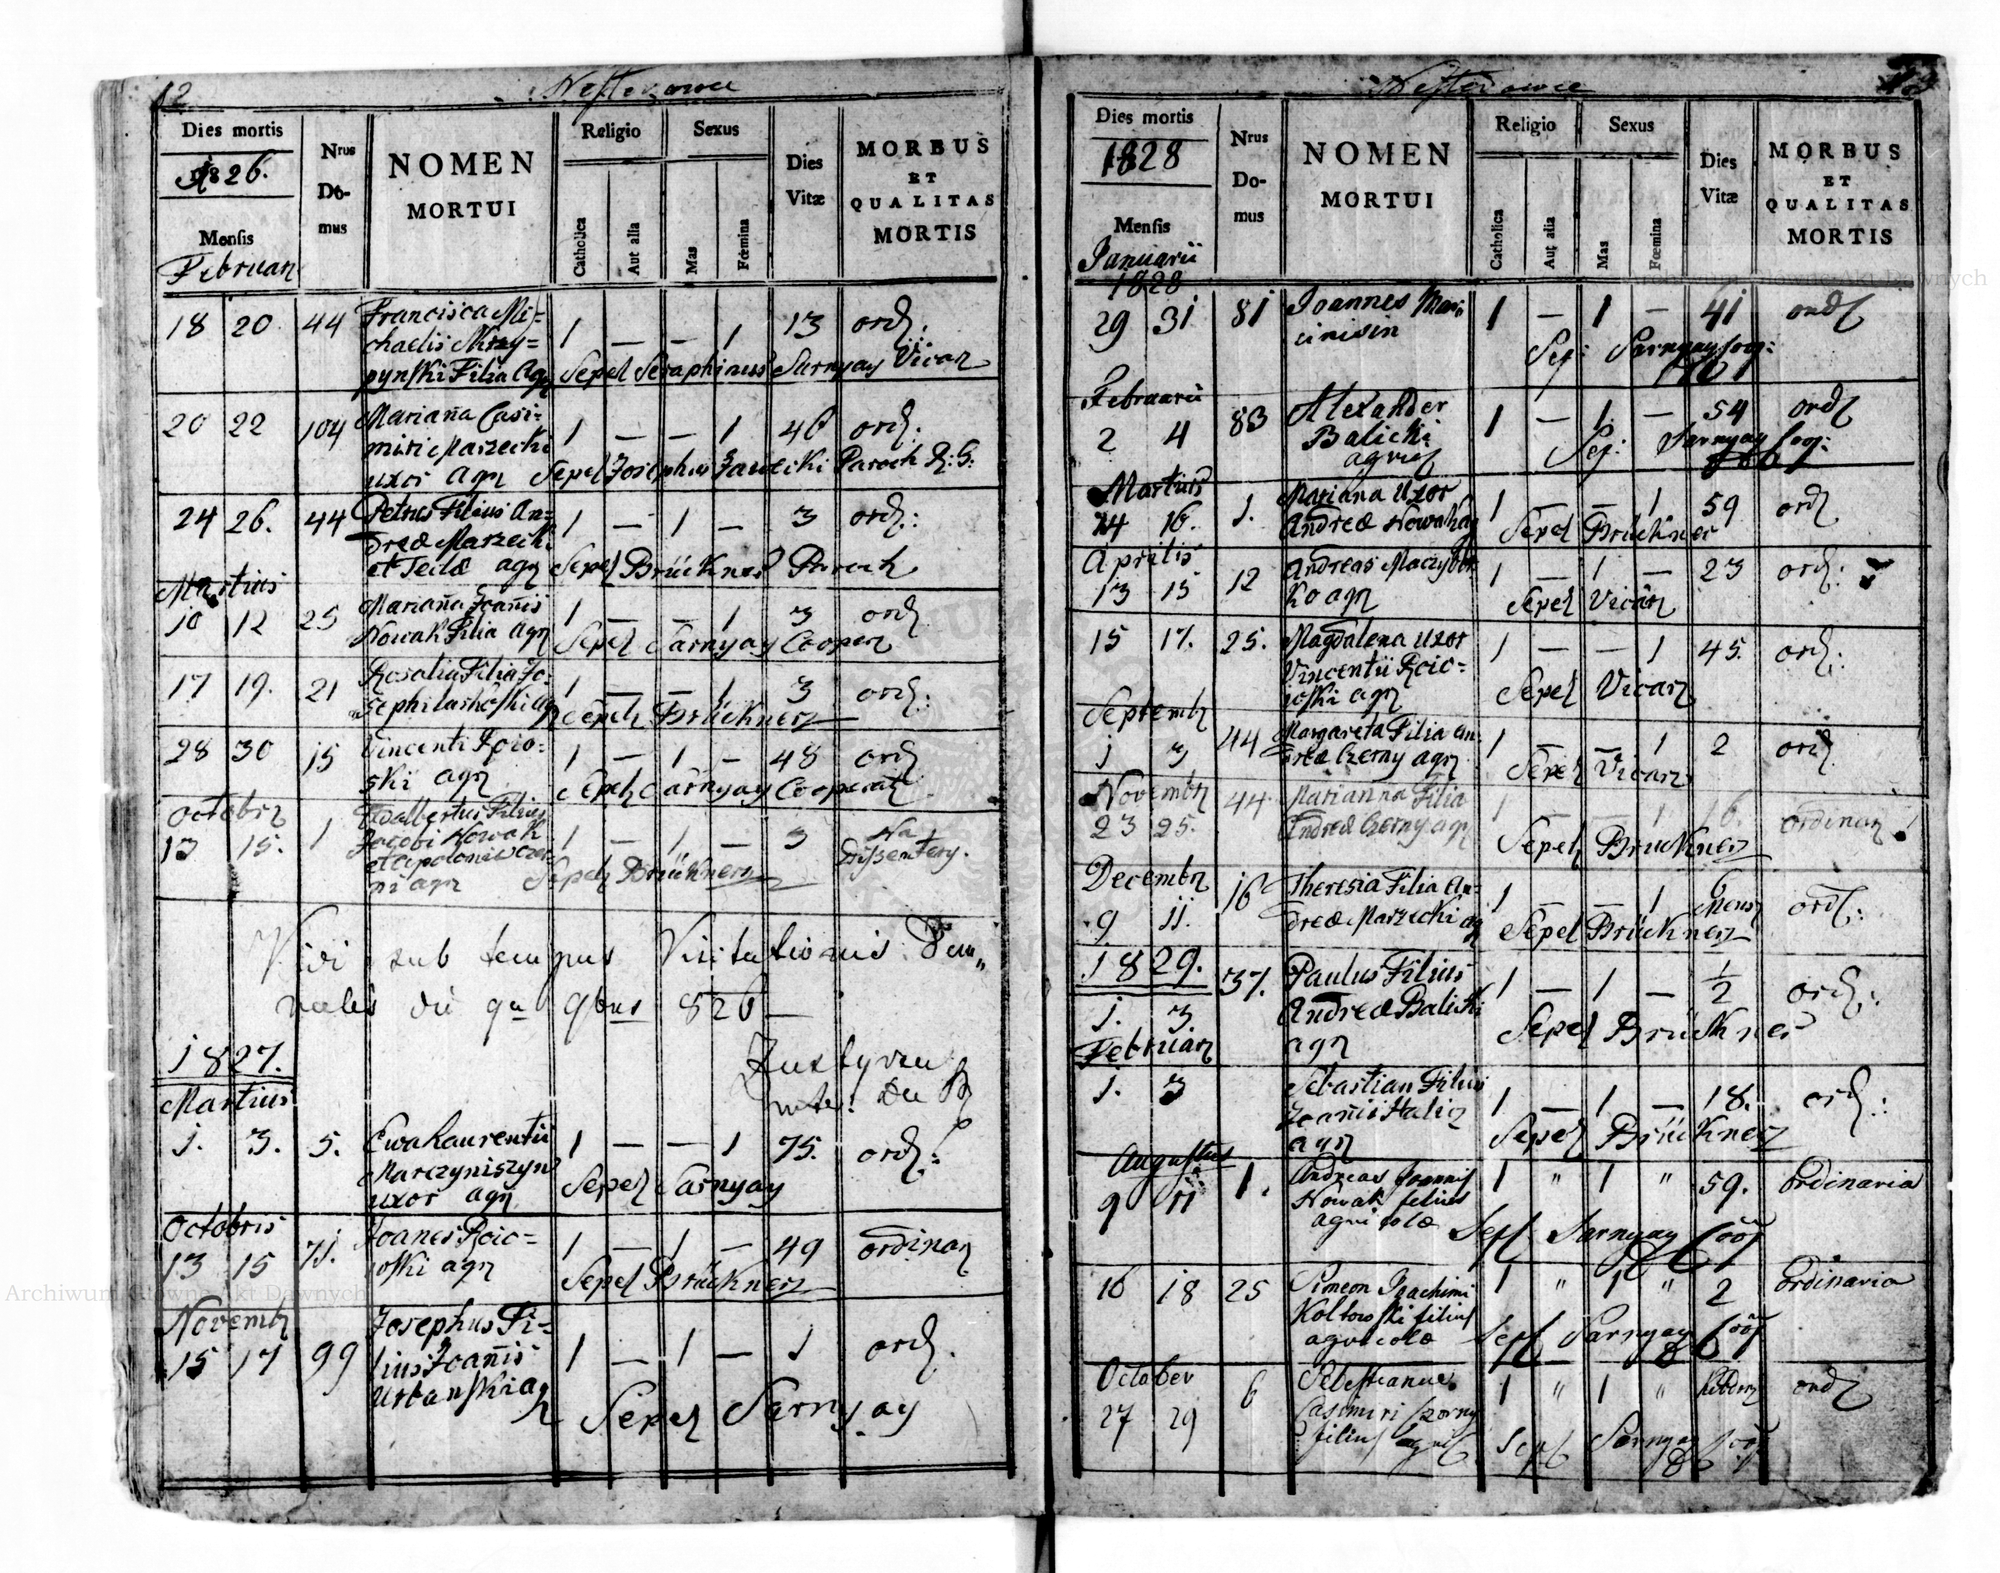 12
Nesterowce
Dies mortis
1826.
Mensis
Februar
Nrus
Do-
mus
NOMEN
MORTUI
Religio
Catholica
Aut alia
Sexus
Mas
Fœmina
Dies
Vitæ
MORBUS
ET
QUALITAS
MORTIS
18 20. 44 Francisca Mi=
chaelis
Filia Agr 1 — — 1 13 ord.
Sepel Seraphinus Sarnyay Vicar
20 22 104 Mariana Casi=
miri Marzecki
uxor agr 1 — — 1 46 ord:
Sepel Josephus Paroch R: G:
24 26. 44 Petrus Filius An=
dreæ Marzecki
et Teclæ agr 1 — 1 — 3 ord.:
Sepel Brückner Paroch
Martius
10 12 25 Mariana Joanis
Nowak Filia agr 1 — — 1 3 ord
Sepel Sarnyay Cooper
17 19. 21 Rosalia Filia Jo=
sephi agr 1 — — 1 3 ord.:
Sepel Brückner
28 30 15 Vincenti Rcio=
ski agr 1 — 1 — 48 ord
Sepel Sarnyay Cooperat
Octobr
13 15. 1 Adalbertus Filius
Jacobi Nowak
et Apoloniæ Czer=
ni agr 1 — 1 — 3 Na
Dißentery.
Sepel Brückner
Vidi sub tempus Visitationis Dem„
nalis die 9bris 826 —
1827.
Martius
1. 3. 5. Ewa Laurentii
Marczyniszyn
uxor agr 1 — — 1 75. ord.:
Sepel Sarnyay
Octobris
13 15 71. Joanes Rcio=
woski agr 1 — 1 — 49 ordinar
Sepel Brückner
Novembr
15 17 99 Josephus Fi=
lius Joanis
Urbanski agr 1 — 1 — 1 ord.
Sepel Sarnyay
Nesterowce
Dies mortis
1828
Mensis
Januarii
1828
Nrus
Do-
mus
NOMEN
MORTUI
Religio
Catholica
Aut alia
Sexus
Mas
Fœmina
Dies
Vitæ
MORBUS
ET
QUALITAS
MORTIS
29 31 81 Joannes Mar
cinisin 1 — 1 — 41 ord
Sep: Sarnyay Coop:
Februarii
2 4 83 Alexander
Balicki
agric 1 — 1. — 54 ord
Sep: Sarnyay Coop:
Martius
14 16. 1. Mariana Uxor
Andreæ Nowak agr 1 — — 1. 59 ord
Sepel Brückner
Aprilis
13 15 12 Andreas
ko agr 1 — 1 — 23 ord:
Sepel Vicar
15 17. 25. Magdalena Uxor
Vincentii Rcio=
woski agr 1 — — 1 45. ord:
Sepel Vicar
Septembr
1 3 44 Margareta Filia An=
dreæ Czerny agr 1 — — 1 2 ord
Sepel Vicar
Novembr
23 25. 44 Marianna Filia
Andreæ Czerny agr 1 — — 1 16. ordinar
Sepel Brückner
Decembr
9 11. 16 Theresia Filia An=
dreæ Marzecki agr 1 — — 1 6
Mens ord.:
Sepel Brückner
1829.
1. 3. 37. Paulus Filius
Andreæ Balicki
agr 1 — 1 — 1/2 ord.:
Sepel Brückner
Februar
1. 3 Sebastian Filius
Joanis Halic
agr 1 — 1 — 18. ord.:
Sepel Brückner
Augustus
9 11 1. Andreas Joannis
Nowak filius
agricolæ 1 " 1 " 59. Ordinaria
Sepl Sarnyay Coop
16 18 25 Simeon Joachimi
Koltowski filius
agricolæ 1 " 1 " 2 Ordinaria
Sepl Sarnyay Coop
October
27 29 6 Sebestianus
Casimiri Czorny
filius agric 1 " 1 " ord
Sepl Sarnyay Coop
Archiwum Główne Akt Dawnych
Archiwum Główne Akt Dawnych